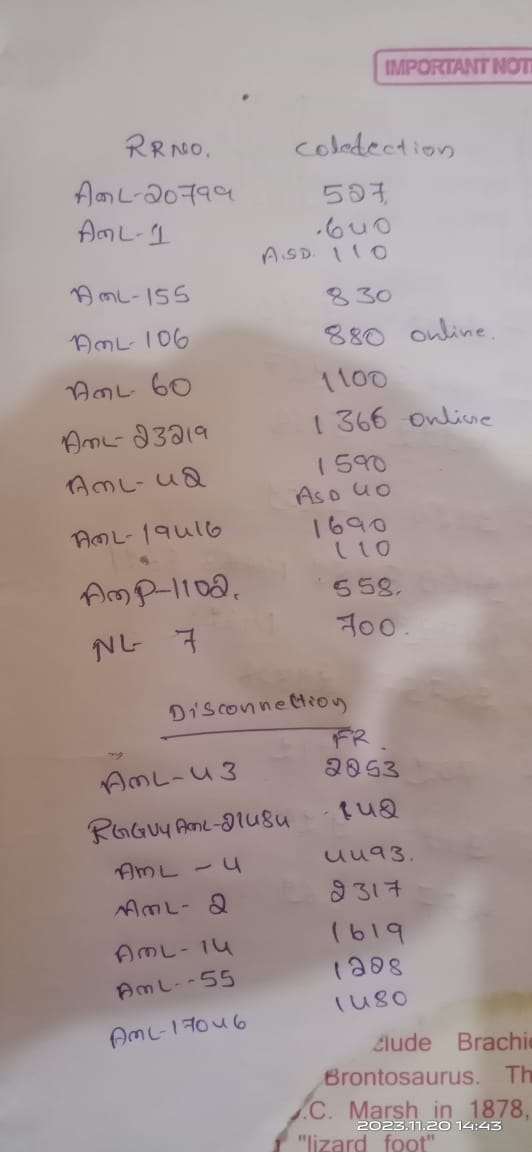 IMPORTANT NOT
RRNO. Coledection
AmL-20799 527.
AmL-1 .640
A.SD. 110
AmL-155 830
AmL-106 880 online.
AmL-60 1100
AmL-23219 1366 online
AmL-42 1590
ASD 40
AmL-19416 1690
110
AmP-1102. 558.
NL- 7 700.
Disconnection
FR.
AmL-43 2253
RGGVY AmL-21484 142
AmL-4 4493.
AmL-2 2317
AmL-14 1619
AmL--55 1228
AmL-17046 1480
clude Brachi
Brontosaurus. Th
.C. Marsh in 1878,
2023.11.20 14:43
"lizard foot"